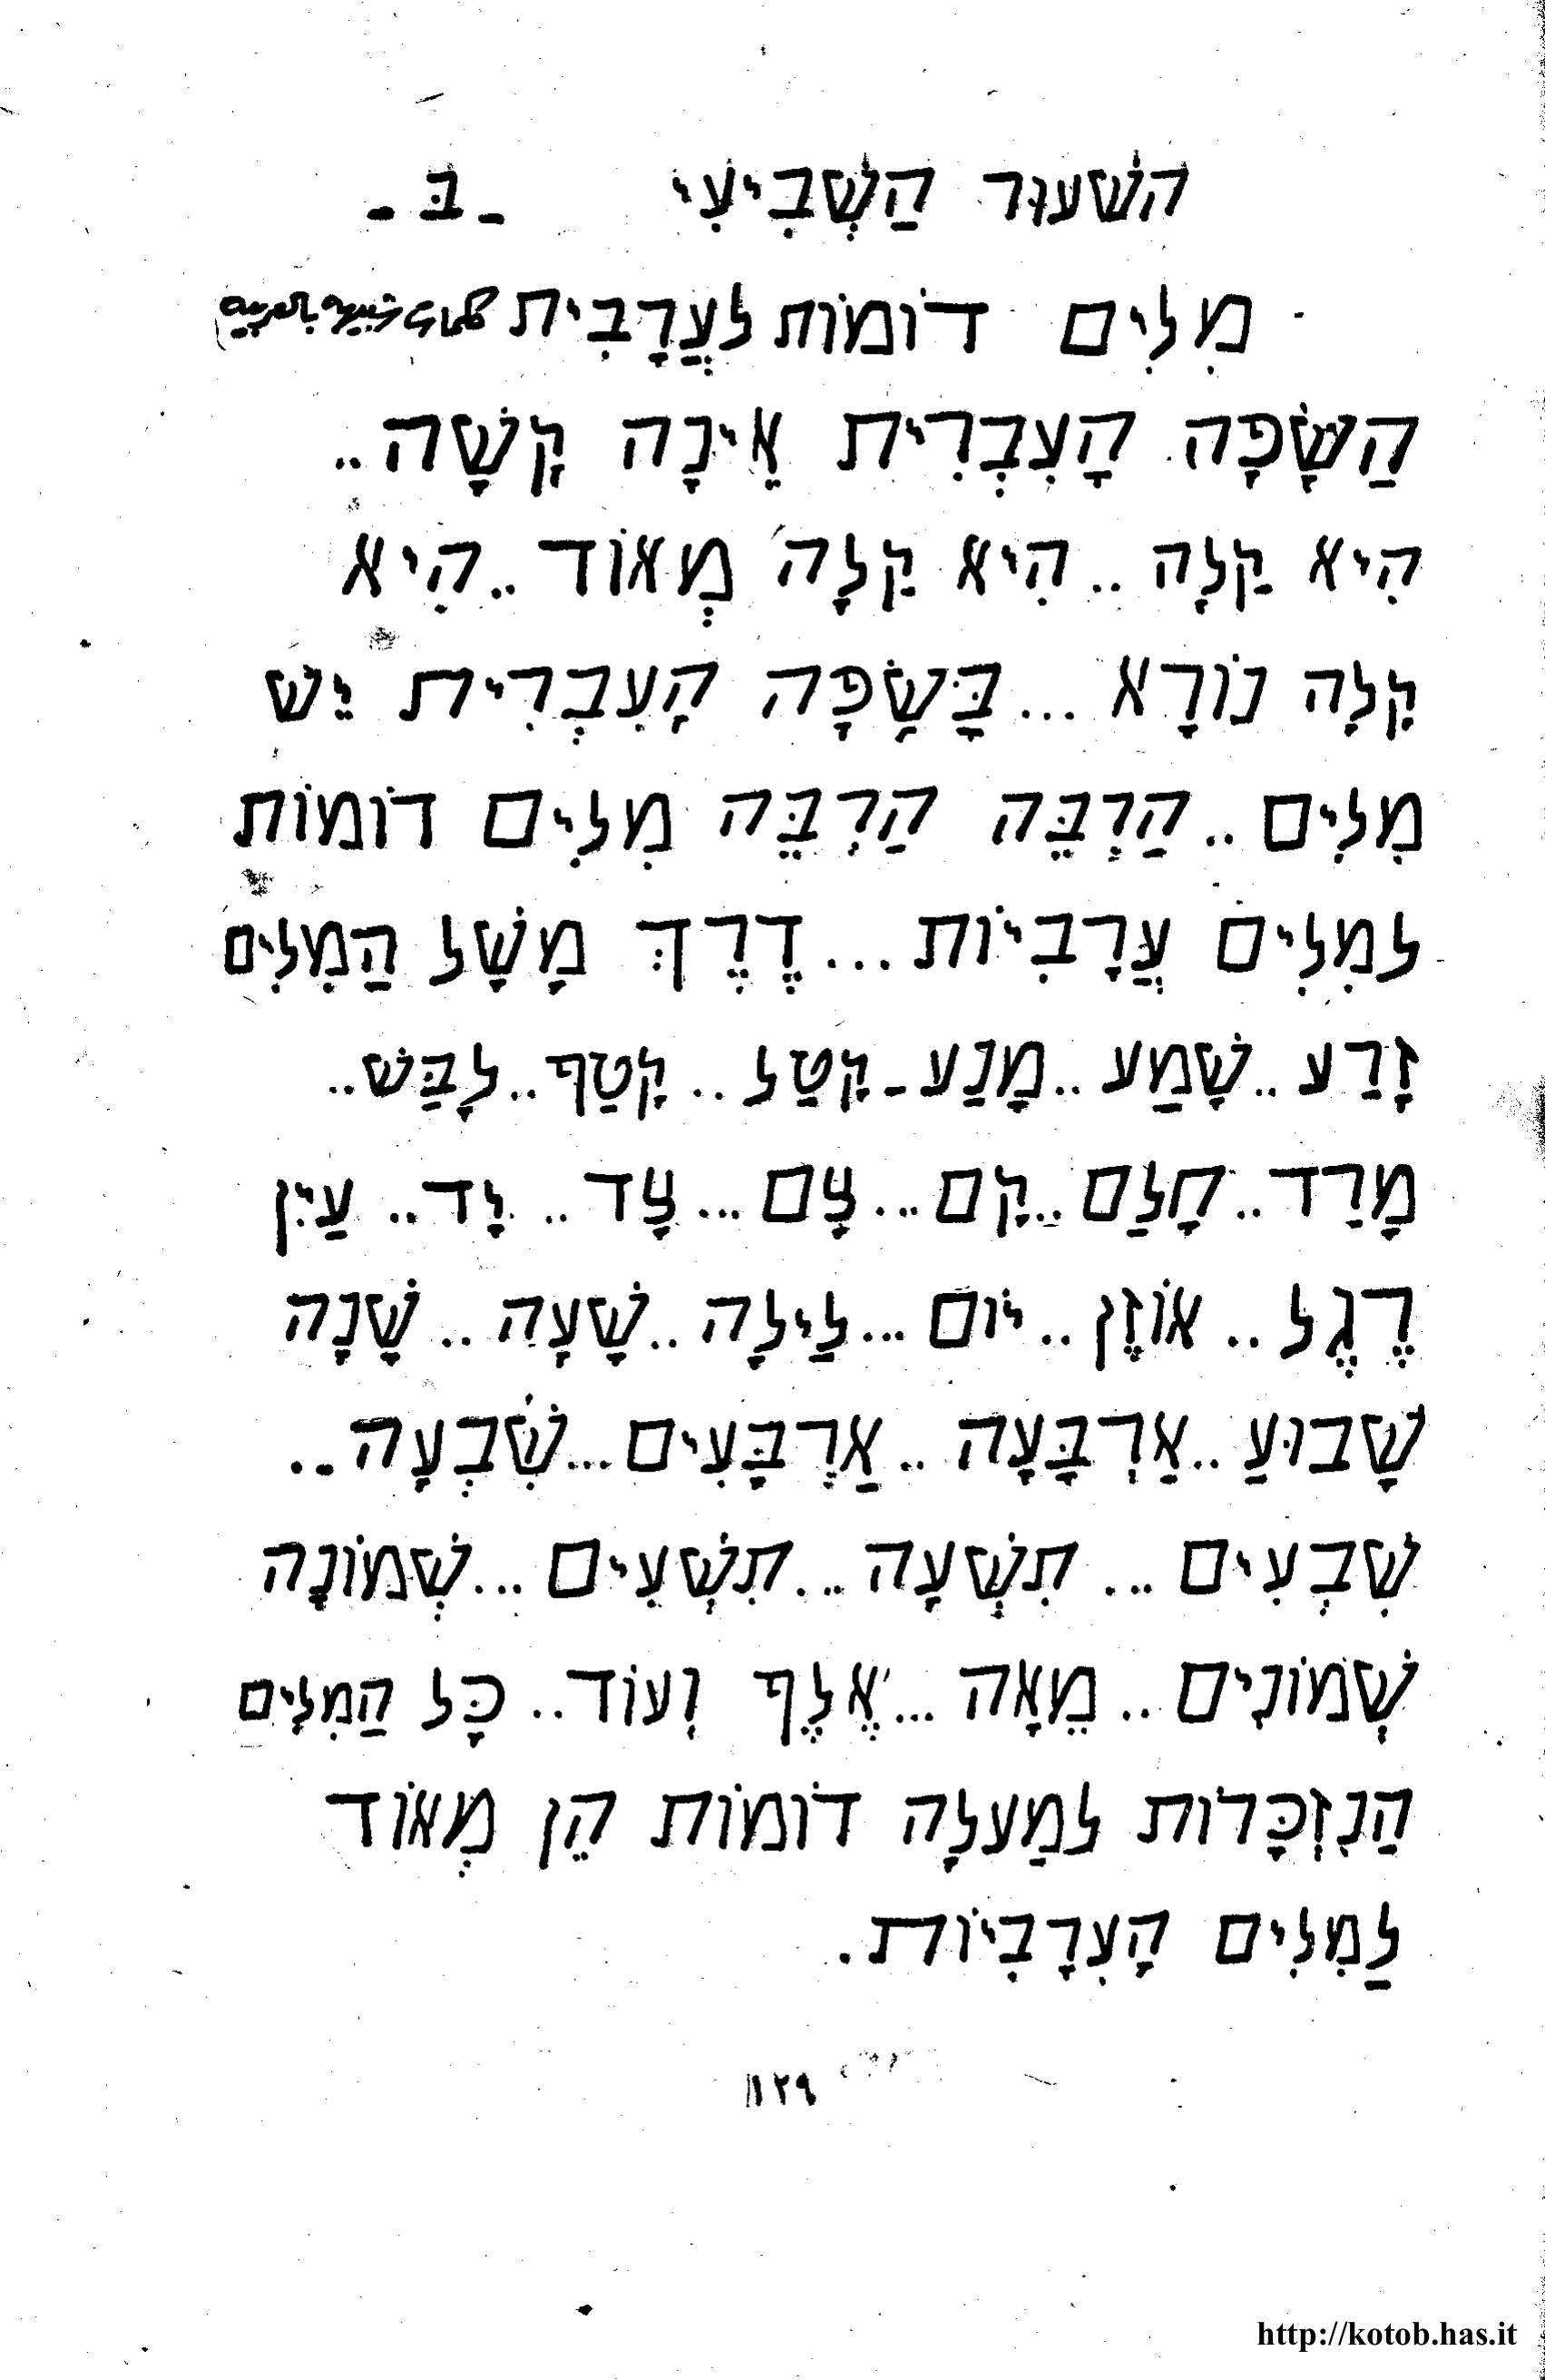 השׁעוּר הַשְׁבִיעִי -בּ-
מִלִים דוֹמוֹת לעֲרָבִית كلمات شبيهه بالعربيه
הַשָׂפָה הָעִבְרִית אֵינָה קָשָׁה..
הִיא קַלָה..הִיא קַלָה מְאוֹד..הִיא
קָלָה נוֹרָא...בָּשָׂפָה הָעִבְרִית יֵשׁ
מִלִים..הַרְבֵּה הַרְבֵּה מִלִים דוֹמוֹת
למִלִים עֲרָבִיוֹת...דֶרֶךְ מָשָׁל הַמִלִים
זָרַע..שָׁמַע..מָנַע-קָטַל..קָטַף..לָבַּשׁ..
מָרַד..חָלַם..קָם...צָם...צָד..יָד..עַיִן
רֶגֶל..אוֹזֶן..יוֹם...לַילָה..שָׁעָה..שָׁנָה
שָׁבוּעַ..אַרְבָּעָה..אַרְבָּעִים...שִׁבְעָה..
שִׁבְעִים...תִשְׁעָה...תִשְׁעִים...שְׁמוֹנָה
שְׁמוֹנִים..מֵאָה...אֶלֶף וְעוֹד..כָּל הַמִלִים
הַנִזְכָּרוֹת למַעלָה דוֹמוֹת הֵן מְאוֹד
לַמִלִים הָעִרָבִיוֹת.
١٢٩
http://kotob.has.it